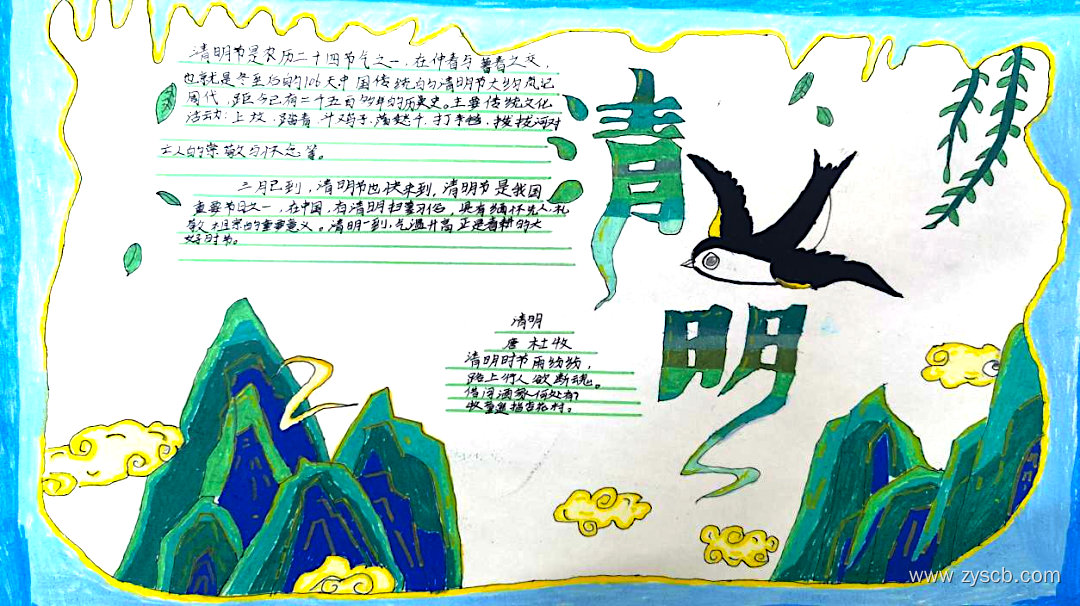 清明节是农历二十四节气之一，在仲春与暮春之交，
也就是冬至后的106天中国传统的清明节大约始
周代，距今已有二千五百多年的历史。主要传统文化
活动：上坟、踏青、斗鸡子、荡秋千、打手毯、拔拔河对
亡人的崇敬与怀念等。
三月已到，清明节也快来到，清明节是我国
重要节日之一，在中国，有清明扫墓习俗，具有缅怀先人，礼
敬祖宗的重要意义。清明一到，气温升高正是春耕的大
好时节。
清明
清明
唐 杜牧
清明时节雨纷纷，
路上行人欲断魂。
借问酒家何处有
牧童遥指杏花村。
www.zyscb.com